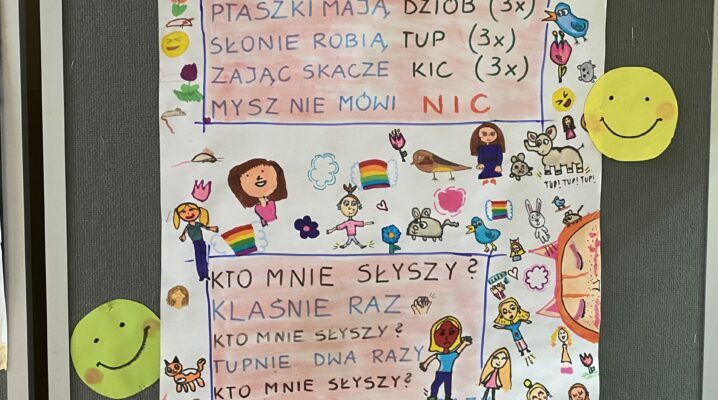 PTASZKI MAJĄ DZIÓB (3x)
SŁONIE ROBIĄ TUP (3x)
ZAJĄC SKACZE KIC (3x)
MYSZ NIE MÓWI NIC
TUP! TUP! TUP!
KTO MNIE SŁYSZY?
KLAŚNIE RAZ
KTO MNIE SŁYSZY?
TUPNIE DWA RAZY
KTO MNIE SŁYSZY?